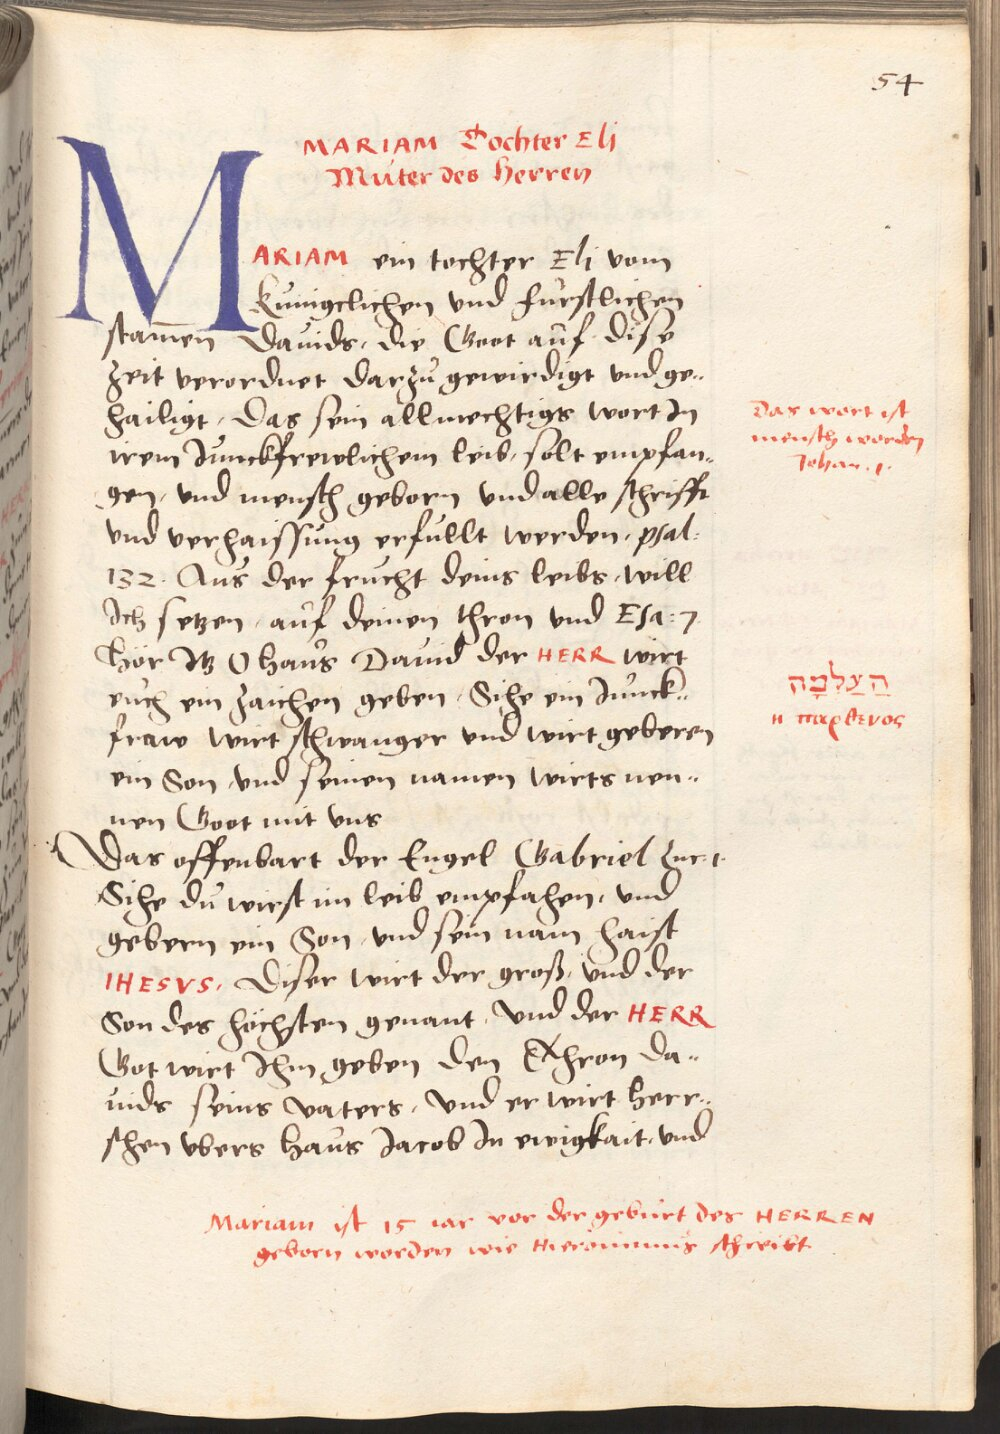 54
MARIAM Tochter Eli
Muter des Herren
MARIAM ein tochter Eli vom
kunigclichen und furstlichen
stam̄en Dauids, die Goot auf dise
zeit verordnet darzu gewirdigt und ge-
hailigt, Das sein allmechtigs wort In
irem Junckfrewlichem leib, solt empfan-
gen, und mensch geborn und alle schrifft
und verhaissung erfullt werden, psal:
132. Aus der frucht deins leibs, will
Ich setzen, auf deinen thron und Esa: 7
Hör Itz O haus Dauid der HERR wirt
euch ein zaichen geben, Sihe ein Junck-
fraw wirt schwanger und wirt geberen
ein Son, und seinen namen wirts nen-
nen Goot mit uns
Das offenbart der Engel Gabriel Luc: 1
Sihe du wirst im leib empfahen, und
gebern ein Son, und sein nam haist
IHESVS, Diser wirt der groß, und der
Son des höchsten genant, Und der HERR
Got wirt Ihm geben den Thron Da-
uids seins vaters, Und er wirt herr-
schen ubers haus Jacob In ewigkait, und
Das wort ist
mensch worden
Johan. 1.
הַעַלְמָה
η παρθενος
Mariam ist 15 iar vor der geburt des HERREN
geborn worden wie Hieronimus schreibt